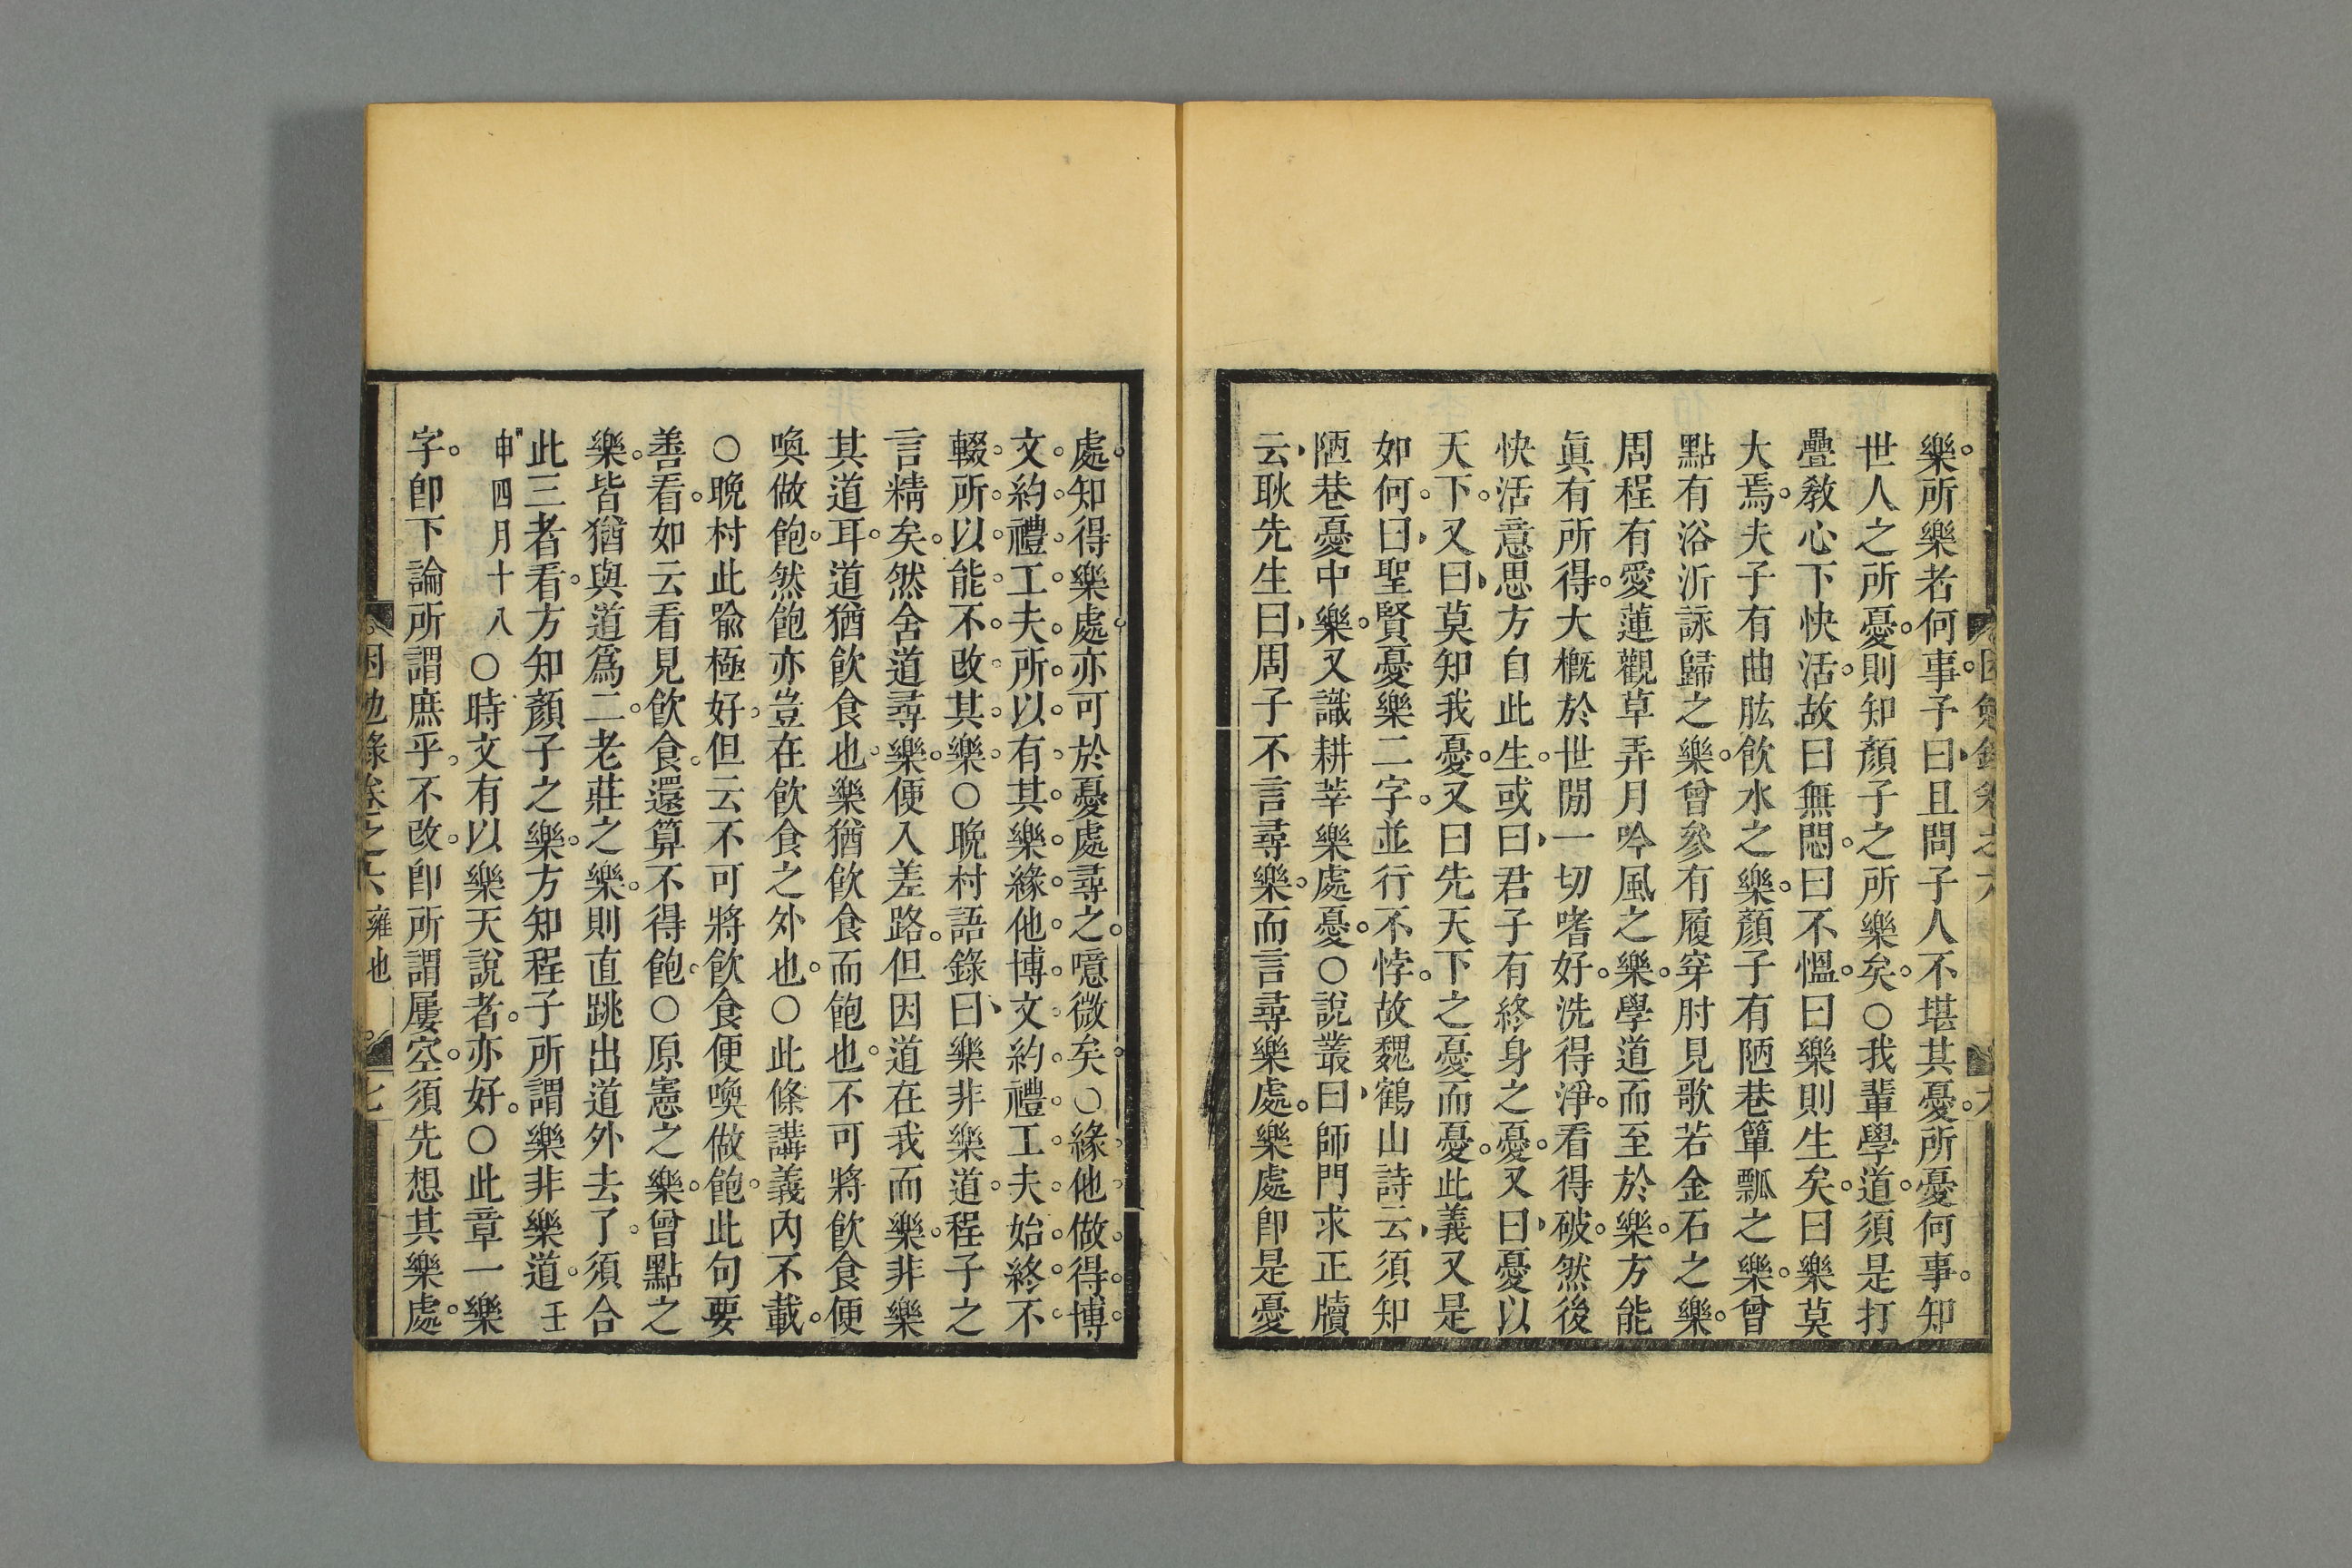 樂所樂者何事子曰且問子人不堪其憂所憂何事知
世人之所憂則知顏子之所樂矣○我輩學道須是打
疊教心下快活故曰無悶曰不慍曰樂則生矣曰樂莫
大焉夫子有曲肱飲水之樂顏子有陋巷簞瓢之樂曾
點有浴沂詠歸之樂曾參有履穿肘見歌若金石之樂
周程有愛蓮觀草弄月吟風之樂學道而至於樂方能
眞有所得大概於世閒一切嗜好洗得淨看得破然後
快活意思方自此生或曰君子有終身之憂又曰憂以
天下又曰莫知我憂又曰先天下之憂而憂此義又是
如何曰聖賢憂樂二字並行不悖故魏鶴山詩云須知
陋巷憂中樂又識耕莘樂處憂○說叢曰師門求正牘
云耿先生曰周子不言尋樂而言尋樂處樂處卽是憂
處知得樂處亦可於憂處尋之噫微矣○緣他做得博
文約禮工夫所以有其樂緣他博文約禮工夫始終不
輟所以能不改其樂○晩村語錄曰樂非樂道程子之
言精矣然舍道尋樂便入差路但因道在我而樂非樂
其道耳道猶飮食也樂猶飮食而飽也不可將飮食便
喚做飽然飽亦豈在飮食之外也○此條講義內不載
○晩村此喩極好但云不可將飮食便喚做飽此句要
善看如云看見飮食還算不得飽○原憲之樂曾點之
樂皆猶與道爲二老莊之樂則直跳出道外去了須合
此三者看方知顏子之樂方知程子所謂樂非樂道壬
申四月十八○時文有以樂天說者亦好○此章一樂
字卽下論所謂庶乎不改卽所謂屢空須先想其樂處
困勉錄卷之六 雍也 七